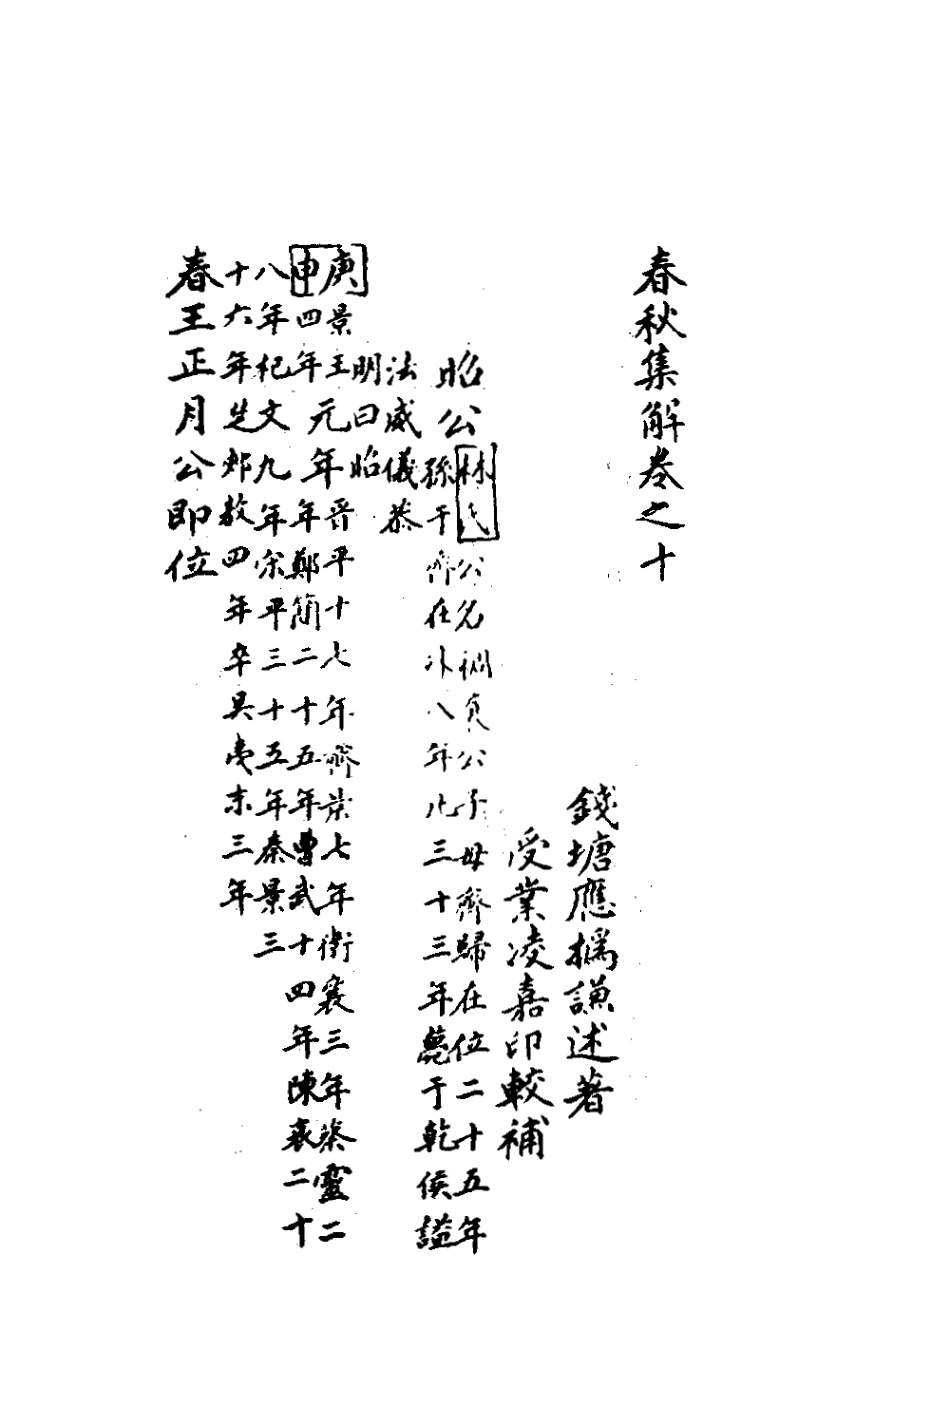 春秋集解卷之十
錢塘應撝謙述著
受業凌嘉印較補
昭公
林氏公名禂襄公子母齊歸在位二十五年
孫于齊在外八年凡三十三年薨于乾侯諡
法威儀恭
明曰昭
庚申景王四年元年晉平十七年齊景七年衛襄三年蔡靈二
年鄭簡二十五年曹武十四年陳哀二十
八年杞文九年宋平三十五年秦景三
十六年楚郟敖四年卒吳夷末三年
春王正月公即位